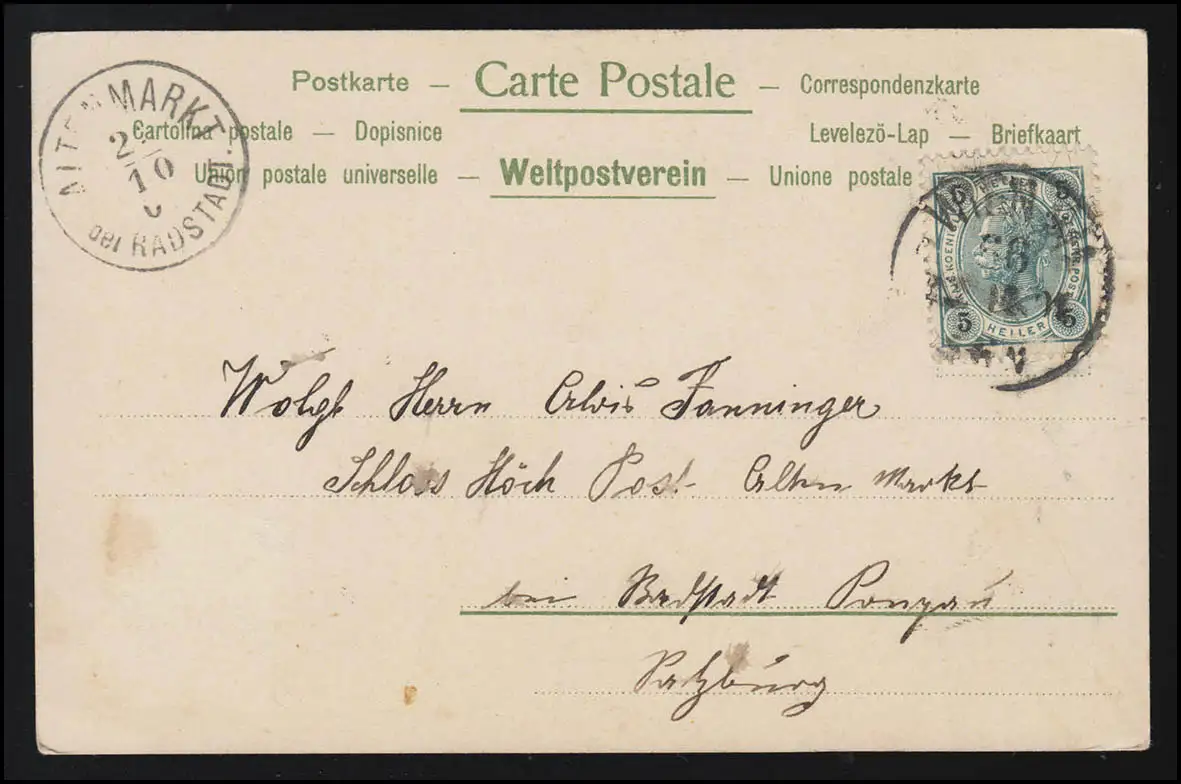 Postkarte — Carte Postale — Correspondenzkarte
Cartolina postale — Dopisnice
Levelezö-Lap — Briefkaart
Union postale universelle — Weltpostverein — Unione postale
ALTENMARKT
2/10
bei RADSTADT
5 5
5 HELLER 5
WIEN
Wolgb Herrn Alois Fanninger
Schloss Höch Post Alten Markt
bei Radstadt Pongau
Salzburg